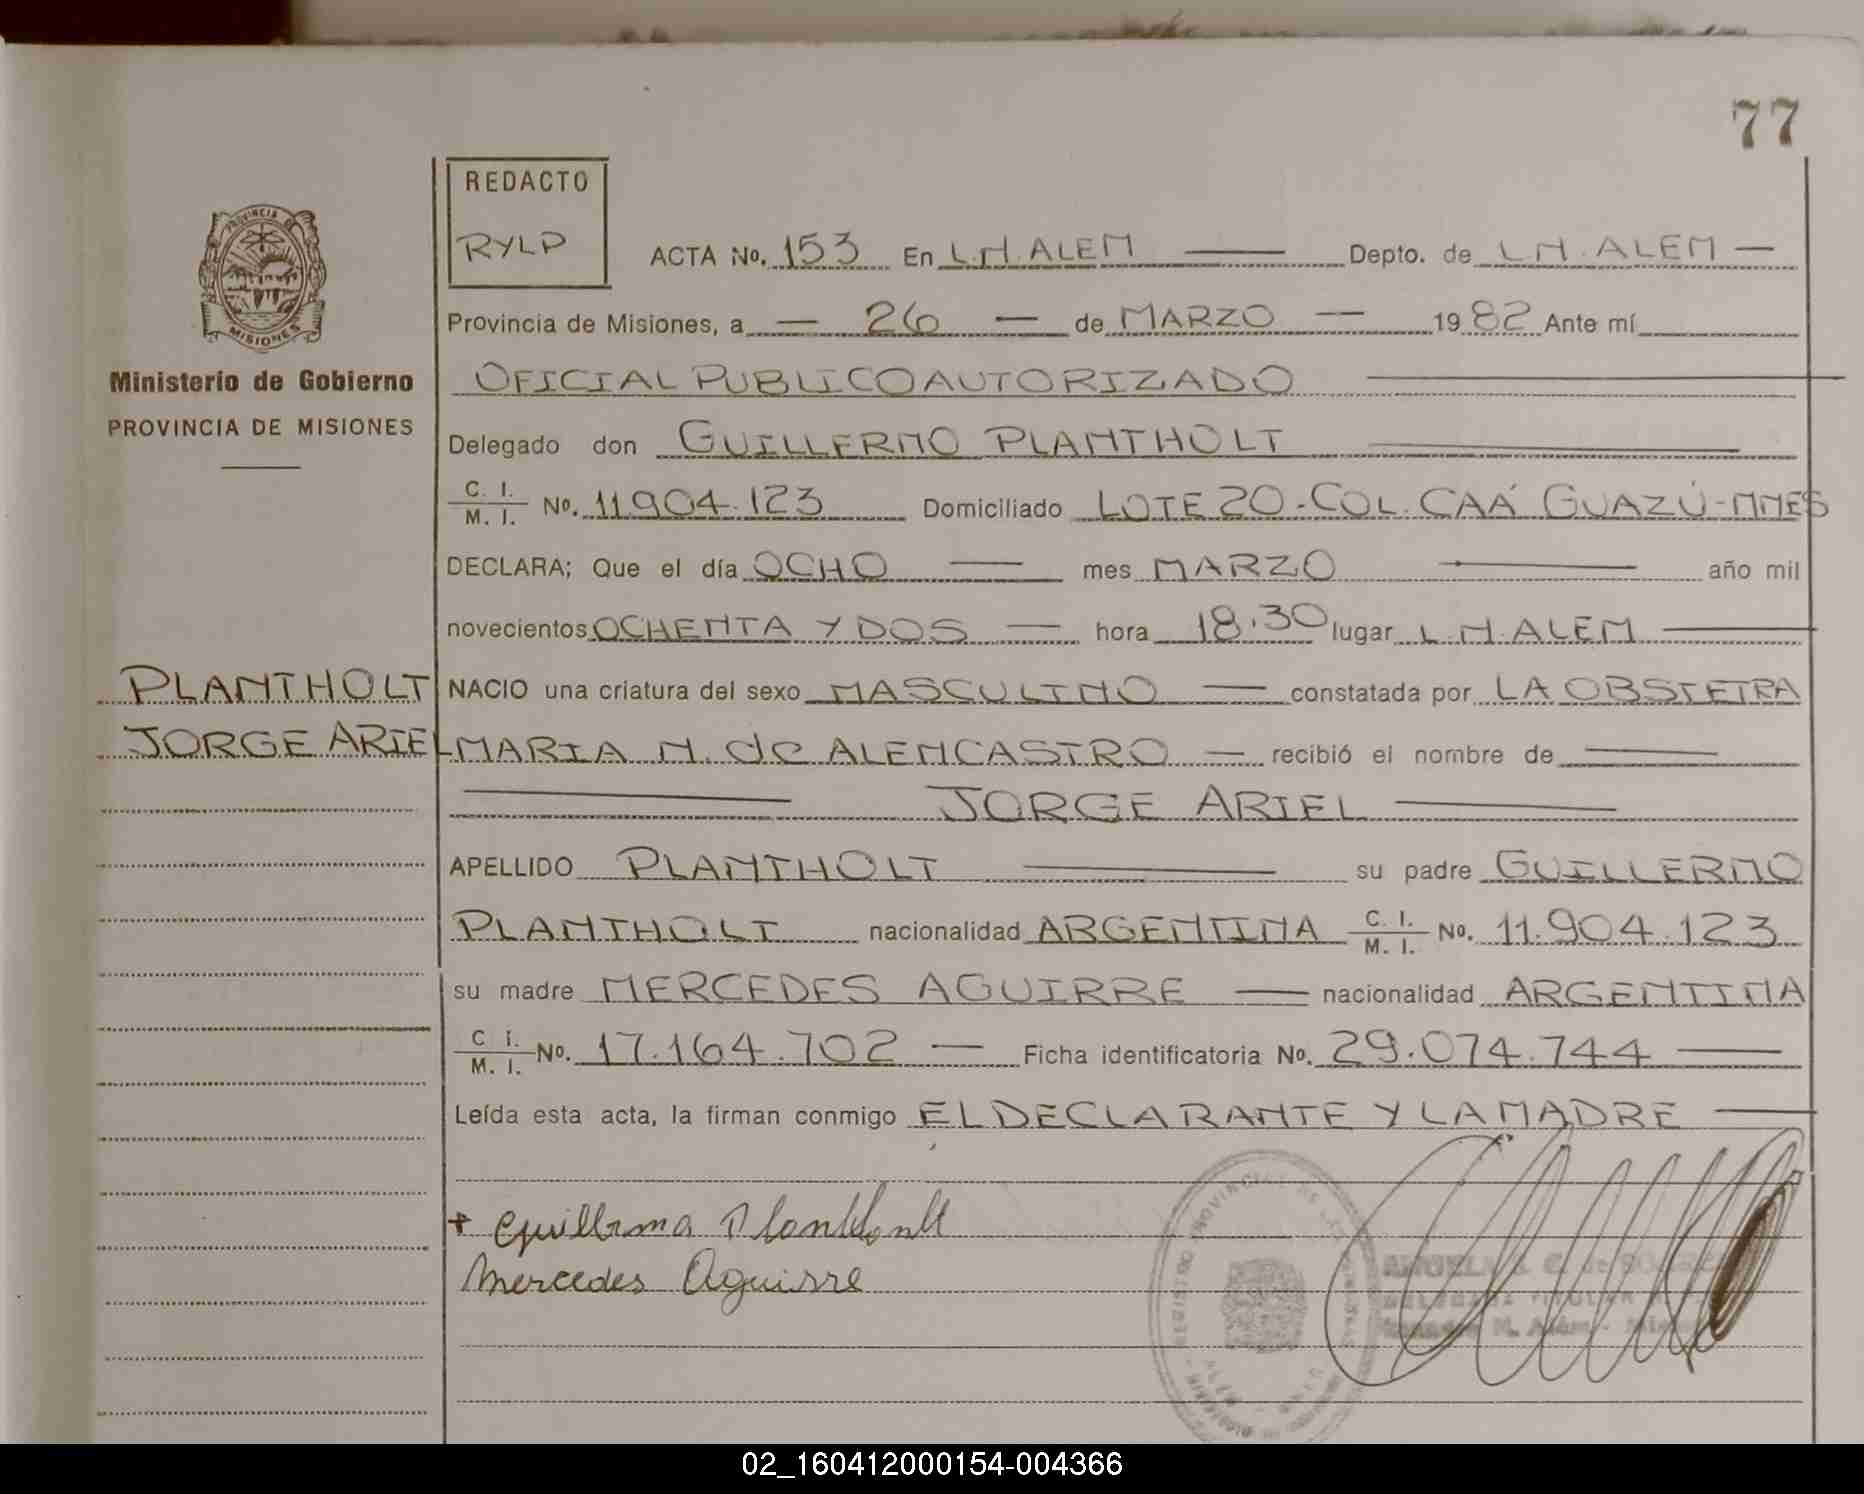 77
REDACTO
RYLP
ACTA No. 153 En L.N.ALEM Depto. de L.N.ALEM
Provincia de Misiones, a 26 de MARZO 1982 Ante mí
OFICIAL PUBLICO AUTORIZADO
Delegado don GUILLERMO PLANTHOLT
C. I. M. I. No. 11.904.123 Domiciliado LOTE 20-COL. CAÁ GUAZÚ-MNES
DECLARA; Que el día OCHO mes MARZO año mil
novecientos OCHENTA Y DOS hora 18.30 lugar L.N.ALEM
NACIO una criatura del sexo MASCULINO constatada por LA OBSTETRA
MARIA N. de ALENCASTRO recibió el nombre de
JORGE ARIEL
APELLIDO PLANTHOLT su padre GUILLERMO
PLANTHOLT nacionalidad ARGENTINA C. I. M. I. No. 11.904.123
su madre MERCEDES AGUIRRE nacionalidad ARGENTINA
C. I. M. I. No. 17.164.702 Ficha identificatoria No. 29.074.744
Leída esta acta, la firman conmigo EL DECLARANTE Y LA MADRE
Mercedes Aguirre
PROVINCIA DE MISIONES
Ministerio de Gobierno
PROVINCIA DE MISIONES
PLANTHOLT
JORGE ARIEL
02_160412000154-004366